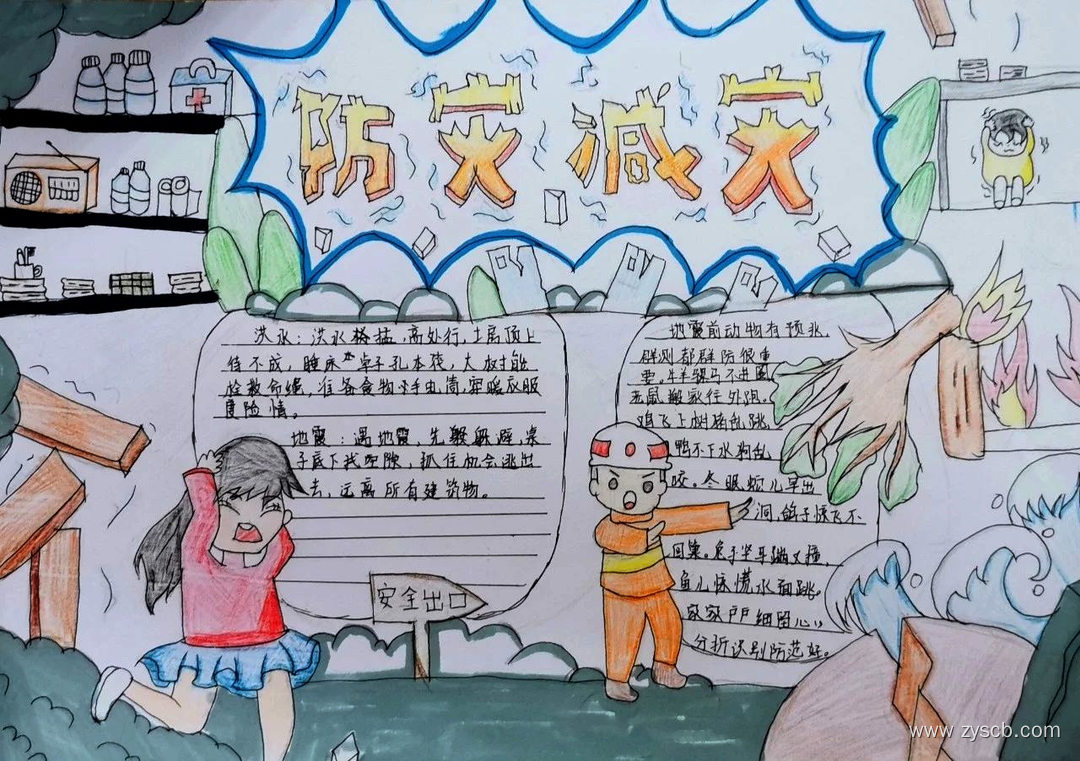 防灾减灾
洪水：洪水猛,高处行,土房顶上
待不成,睡床桌子扎木筏,大树能
拴救命绳,准备食物手电筒,穿暖衣服
度险情。
地震：遇地震,先躲避,桌
子底下找空隙,抓住机会逃出
去,远离所有建筑物。
地震前动物有预兆,
群测群防很重
要。牛羊骡马不进圈,
老鼠搬家往外逃。
鸡飞上树猪乱跳,
鸭不下水狗乱
咬。冬眠蛇儿早出
洞,鸽子惊飞不
回巢。兔子竖耳蹦又撞,
鱼儿惊慌水面跳。
家家户户细留心,
分析识别防范好。
安全出口
www.zyscb.com